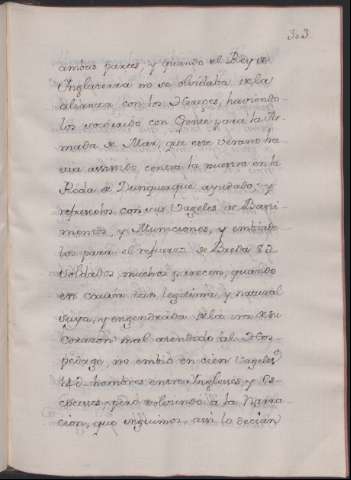 303
ambas partes, y quando el Rey de
Inglaterra no se olvidaba de la
alianza con los Olandeses, haviendo-
los socorrido con Gente para la Ar-
mada de Mar, que este Verano ha
via assistido contra la nuestra en la
Rada de Dunquerque ayudado, y
refrescados con sus Vageles de Basti-
mentos, y Municiones, y embiado
los para el refuerzo de Breda 8
Soldados muchos parecen, quando
en causa tan legitima, y natural
suya, y engendrada de la ira de su
corazon mal atendido al Hos-
pedage, no embió en cien Vageles
14 hombres entre Ingleses, y Es-
coceses; pero volviendo á la Narra
cion, que seguimos, assi lo decian